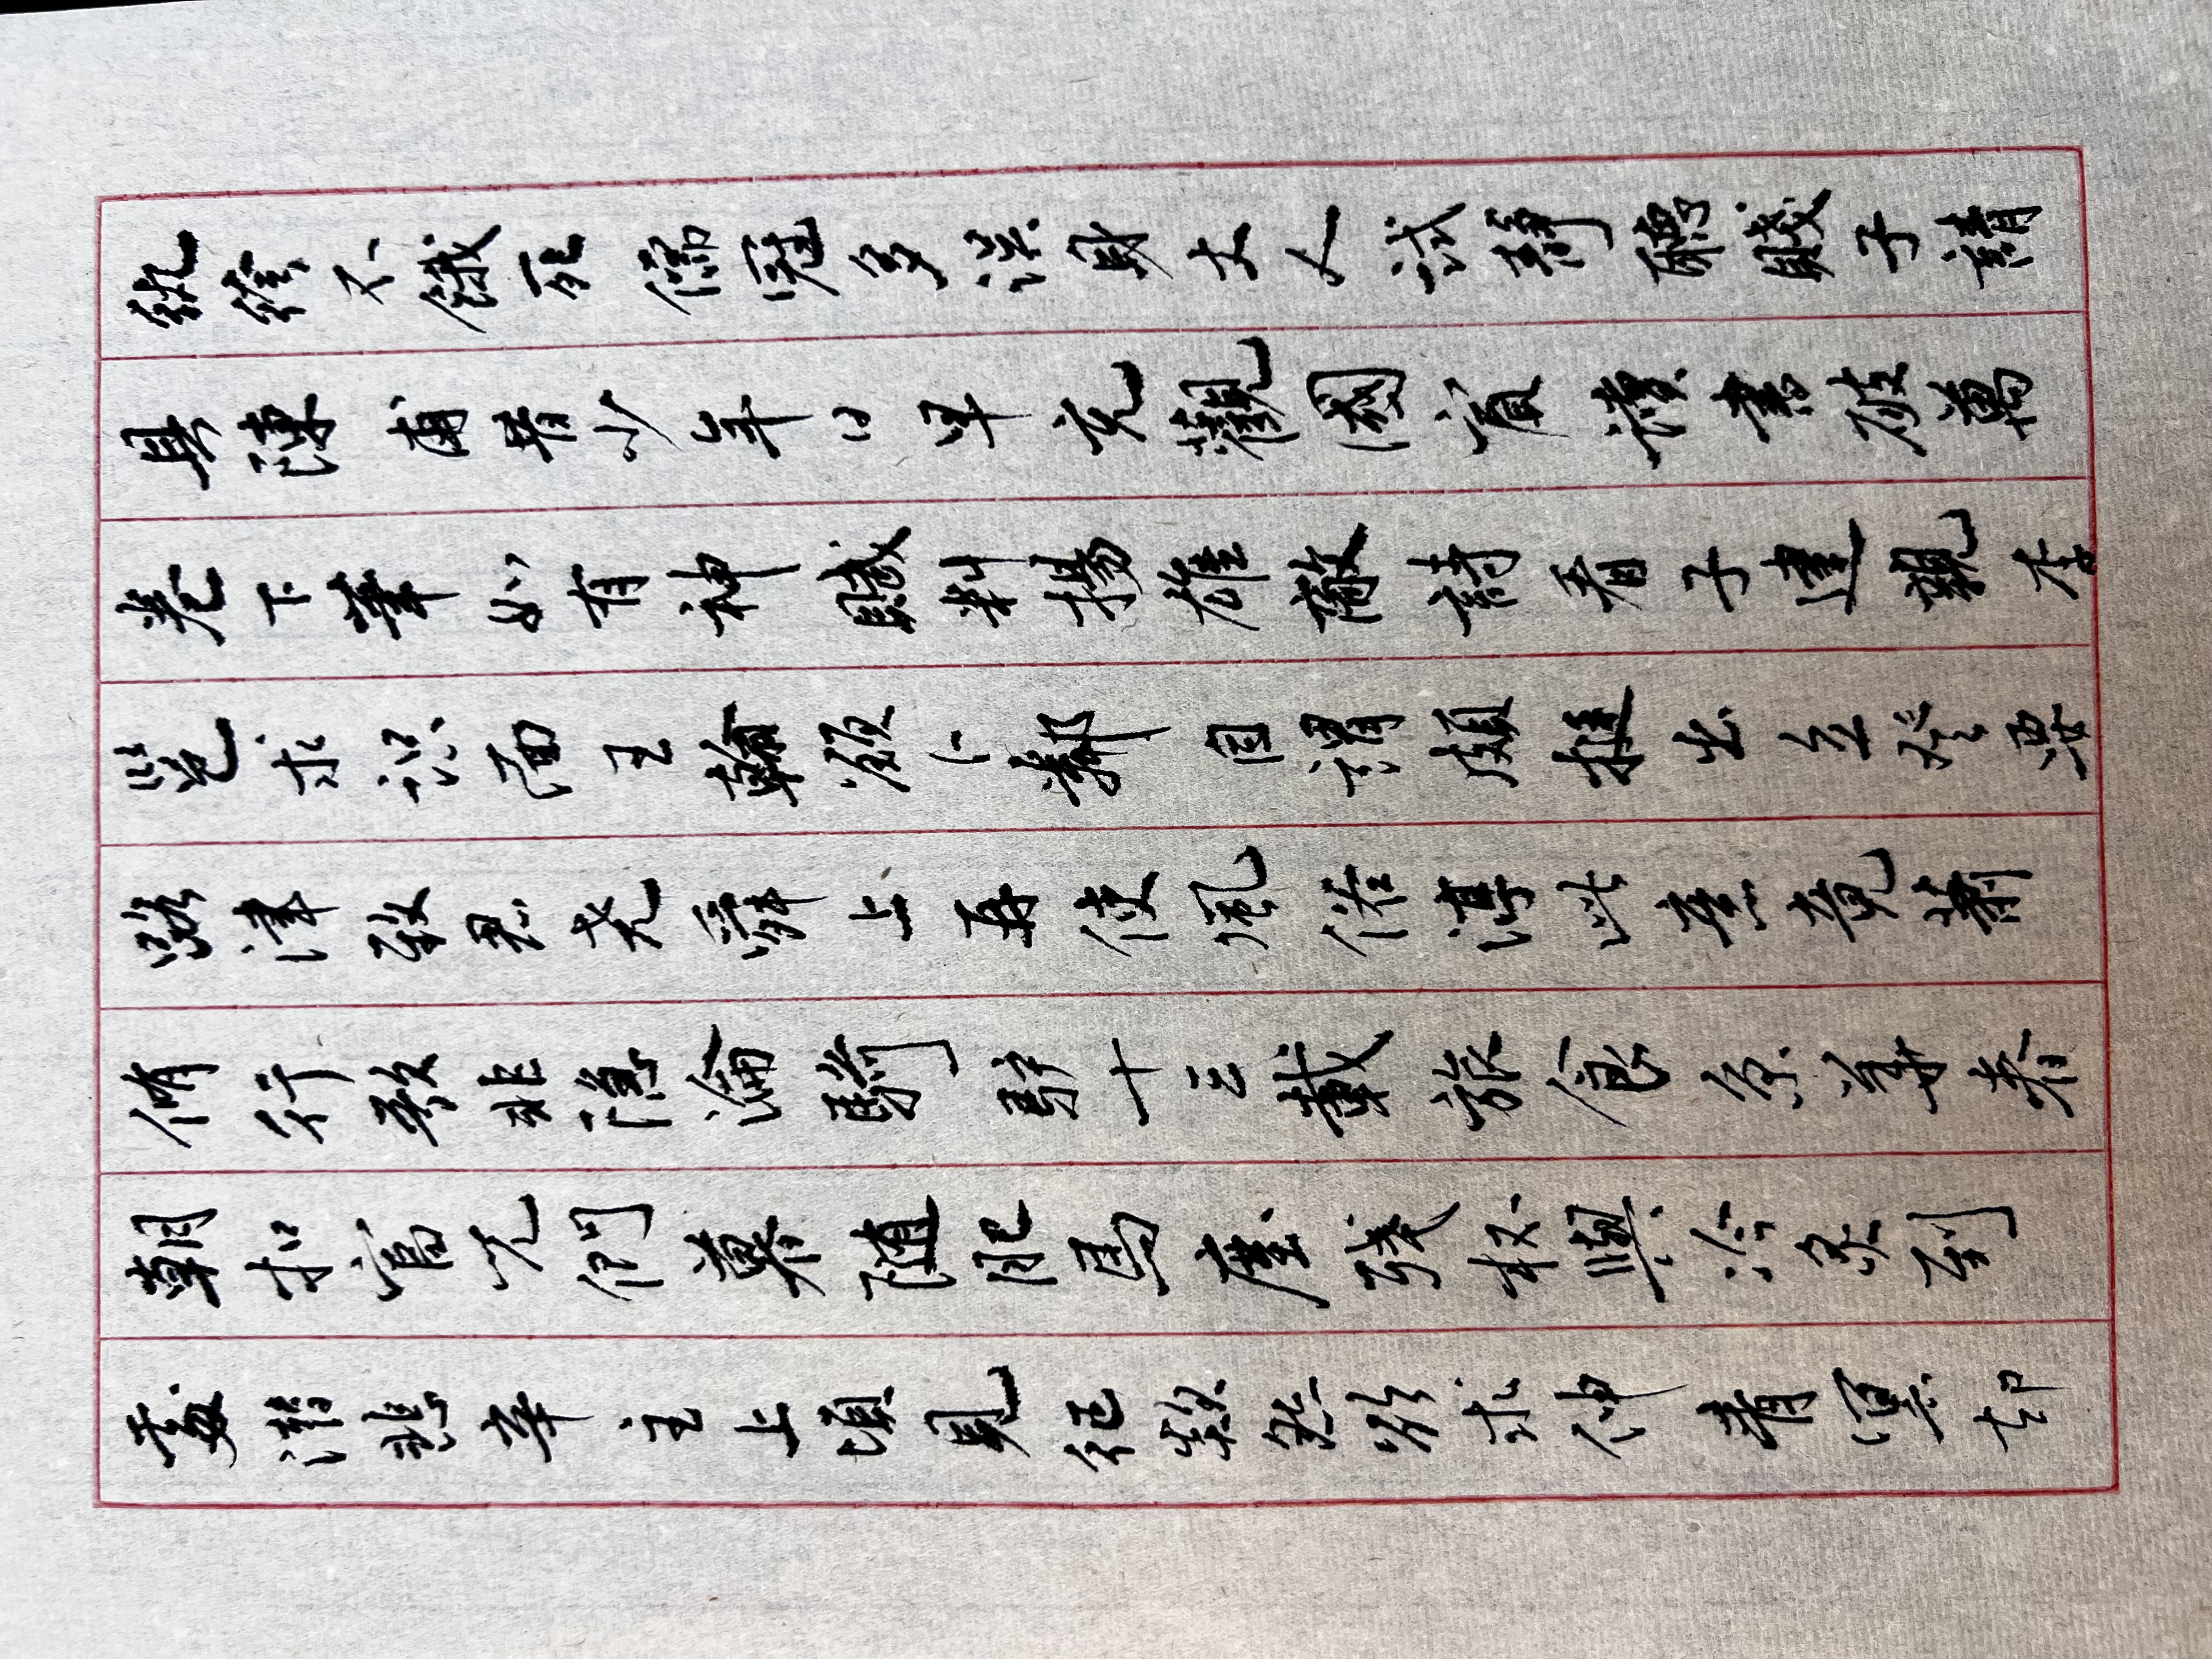 紈袴不餓死儒冠多誤身丈人試靜聽賤子請
具陳甫昔少年日早充觀國賓讀書破萬
卷下筆如有神賦料揚雄敵詩看子建親李
邕求识面王翰願卜鄰自謂頗挺出立登要
路津致君尧舜上再使風俗淳此意竟蕭
條行歌非隱淪騎驴十三載旅食京華春
朝扣富兒門暮随肥馬塵殘杯與冷炙到
處潜悲辛主上頃見征欻然欲求伸青冥却